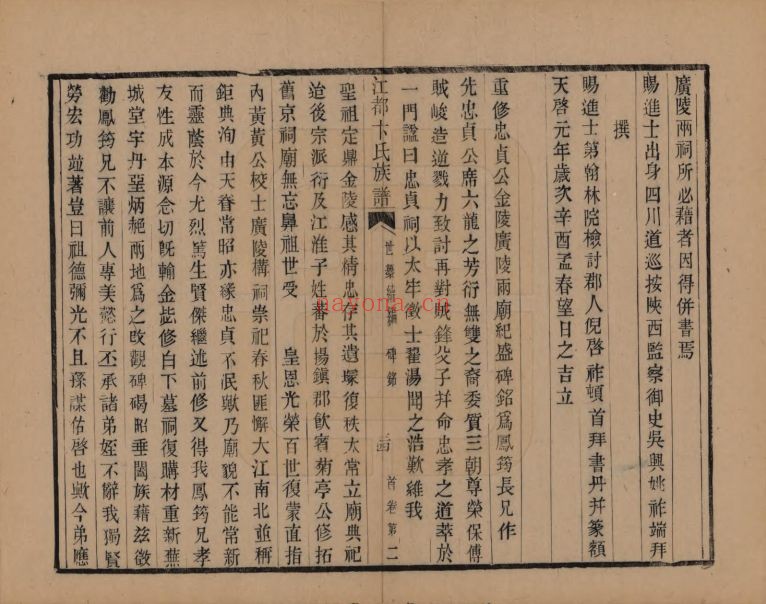 廣陵兩祠所必藉者因得併書焉
賜進士出身四川道巡按陝西監察御史吳興姚祚端拜
撰
賜進士第翰林院檢討郡人倪啓祚頓首拜書丹幷篆額
天啓元年歲次辛酉孟春望日之吉立
重修忠貞公金陵廣陵兩廟紀盛碑銘爲鳳筠長兄作
先忠貞公席六龍之芳衍無雙之裔委質三朝尊榮保傅
賊峻造逆戮力致討再對賊鋒父子幷命忠孝之道萃於
一門諡曰忠貞祠以太牢徵士翟湯聞之浩歎維我
江都卞氏族譜 世藝 碑銘 首卷第二
聖祖定鼎金陵感其情忠存其遺塚復秩太常立廟典祀
迨後宗派衍及江淮子姓蕃於揚鎭郡飲賓菊亭公修拓
舊京祠廟無忘鼻祖世受 皇恩光榮百世復蒙直指
內黃黃公校士廣陵構祠崇祀春秋匪懈大江南北並稱
鉅典洵由天眷常昭亦緣忠貞不泯歟乃廟貌不能常新
而靈蔭於今尤烈篤生賢傑繼述前修又得我鳳筠兄孝
友性成本源念切旣輸金誌修白下墓祠復購材重新蕪
城堂宇丹堊炳艳兩地爲之改觀碑碣昭垂闔族藉玆徵
勸鳳筠兄不讓前人專美懿行丕承諸弟姪不辭我獨賢
勞宏功竝著豈曰祖德彌光不且孫謀佑啓也歟今弟應